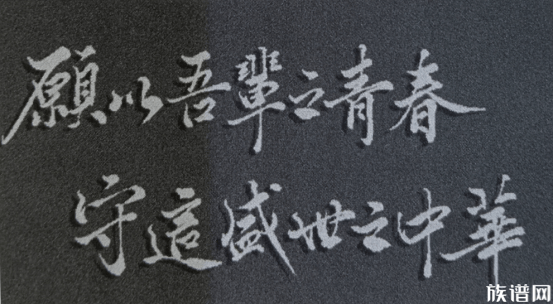 願以吾輩之青春
守這盛世之中華
族谱网